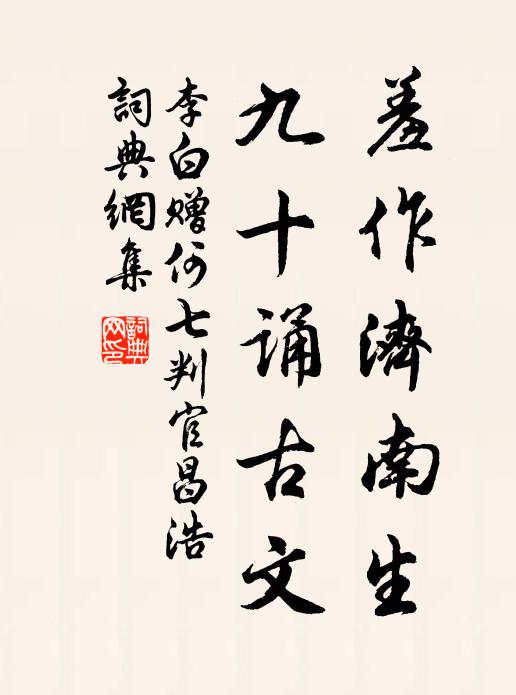 羞作濟南生
九十誦古文
李白贈何七判官昌浩
詞典網集
詞典网印